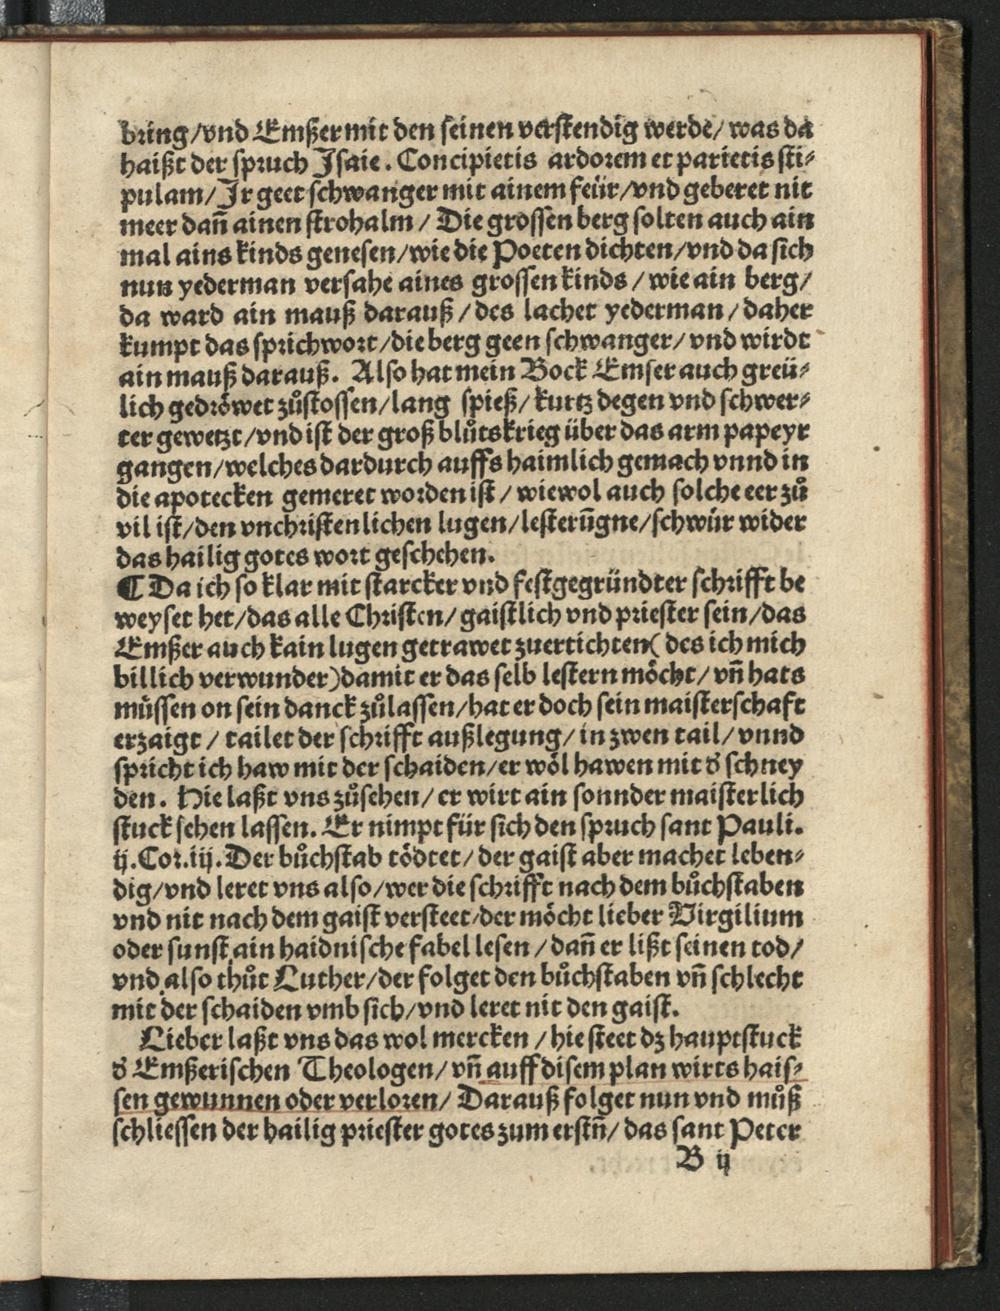 bring/vnd Emßer mit den seinen verstendig werde/ was da
haißt der spruch Jsaie. Concipietis ardorem et parietis sti⸗
pulam/ Jr geet schwanger mit ainem feür/vnd geberet nit
meer dañ ainen strohalm / Die grossen berg solten auch ain
mal ains kinds genesen/wie die Poeten dichten/vnd da sich
nun yederman versahe aines grossen kinds / wie ain berg/
da ward ain mauß darauß / des lachet yederman / daher
kumpt das sprichwort/die berg geen schwanger/ vnd wirdt
ain mauß darauß. Also hat mein Bock Emser auch greü⸗
lich gedroͤwet zůstossen/lang spieß/ kurtz degen vnd schwer⸗
ter gewetzt/vnd ist der groß blůtskrieg über das arm papeyr
gangen/welches dardurch auffs haimlich gemach vnnd in
die apotecken gemeret worden ist / wiewol auch solche eer zů
vil ist/den vnchristenlichen lugen/lesterũgne/schwür wider
das hailig gotes wort geschehen.
¶ Da ich so klar mit starcker vnd festgegründter schrifft be
weyset het/das alle Christen/ gaistlich vnd priester sein/das
Emßer auch kain lugen getrawet zuertichten( des ich mich
billich verwunder)damit er das selb lestern moͤcht/ vñ hats
müssen on sein danck zůlassen/hat er doch sein maisterschaft
erzaigt / tailet der schrifft außlegung/ in zwen tail/ vnnd
spricht ich haw mit der schaiden/er woͤl hawen mit ď schney
den. Hie laßt vns zůsehen/ er wirt ain sonnder maisterlich
stuck sehen lassen. Er nimpt für sich den spruch sant Pauli.
ij.Cor.iij. Der bůchstab toͤdtet/ der gaist aber machet leben⸗
dig/vnd leret vns also/wer die schrifft nach dem bůchstaben
vnd nit nach dem gaist versteet/der moͤcht lieber Virgilium
oder sunst ain haidnische fabel lesen / dañ er lißt seinen tod/
vnd also thůt Luther/der folget den bůchstaben vñ schlecht
mit der schaiden vmb sich/vnd leret nit den gaist.
Lieber laßt vns das wol mercken / hie steet dz hauptstuck
ď Emßerischen Theologen/ vñ auff disem plan wirts hais⸗
sen gewunnen oder verloren/ Darauß folget nun vnd můß
schliessen der hailig priester gotes zum erstñ/ das sant Peter
B ij